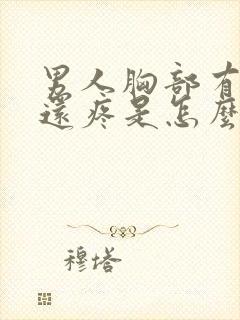 男人胸部有
還疼是怎麼
穆塔